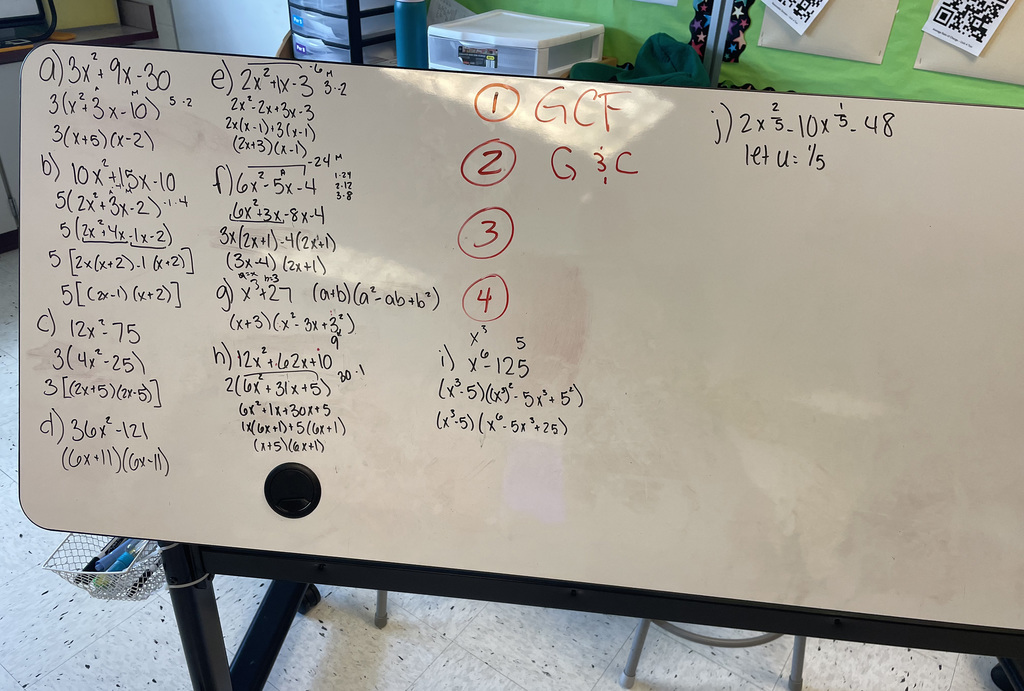 a) 3x² + 9x - 30
3(x² + 3x - 10) 5·2
3(x+5)(x-2)
b) 10x² + 15x - 10
5(2x² + 3x - 2) -1·4
5(2x² + 4x - 1x - 2)
5[2x(x+2) - 1(x+2)]
5[(2x-1)(x+2)]
c) 12x² - 75
3(4x² - 25)
3[(2x+5)(2x-5)]
d) 36x² - 121
(6x+11)(6x-11)
e) 2x² + 1x - 3 -6 M 3·2
2x² - 2x + 3x - 3
2x(x-1) + 3(x-1)
(2x+3)(x-1)
f) 6x² - 5x - 4 -24 M
1·24
2·12
3·8
6x² + 3x - 8x - 4
3x(2x+1) - 4(2x+1)
(3x-4)(2x+1)
a=x b=3
g) x³ + 27 (a+b)(a² - ab + b²)
(x+3)(x² - 3x + 3²)
9
h) 12x² + 62x + 10
2(6x² + 31x + 5) 30·1
6x² + 1x + 30x + 5
1x(6x+1) + 5(6x+1)
(x+5)(6x+1)
① GCF
② G & C
③
④
x³ 5
i) x⁶ - 125
(x³-5)((x³)² - 5x³ + 5²)
(x³-5)(x⁶ - 5x³ + 25)
j) 2x^2/5 - 10x^1/5 - 48
let u = 1/5